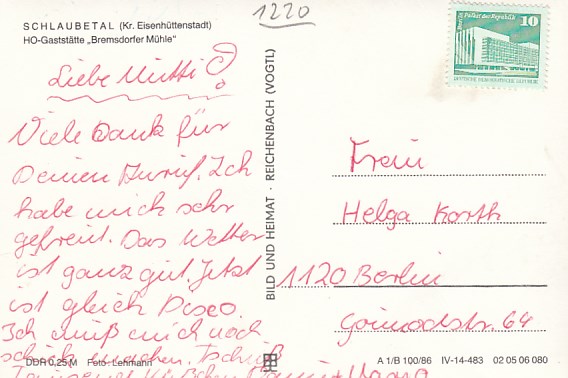 SCHLAUBETAL (Kr. Eisenhüttenstadt)
HO-Gaststätte „Bremsdorfer Mühle"
1220
Liebe Mutti!
Viele Dank für
Deinen Anruf. Ich
habe mich sehr
gefreut. Das Wetter
ist ganz gut. Jetzt
ist gleich Disco.
Ich muß mich noch
schick machen. Tschüß
BILD UND HEIMAT · REICHENBACH (VOGTL)
Palast der Republik
10
DEUTSCHE DEMOKRATISCHE REPUBLIK
Frau
Helga Korth
1120 Berlin
str. 64
DDR 0,25 M Foto: Lehmann
A 1/B 100/86 IV-14-483 02 05 06 080